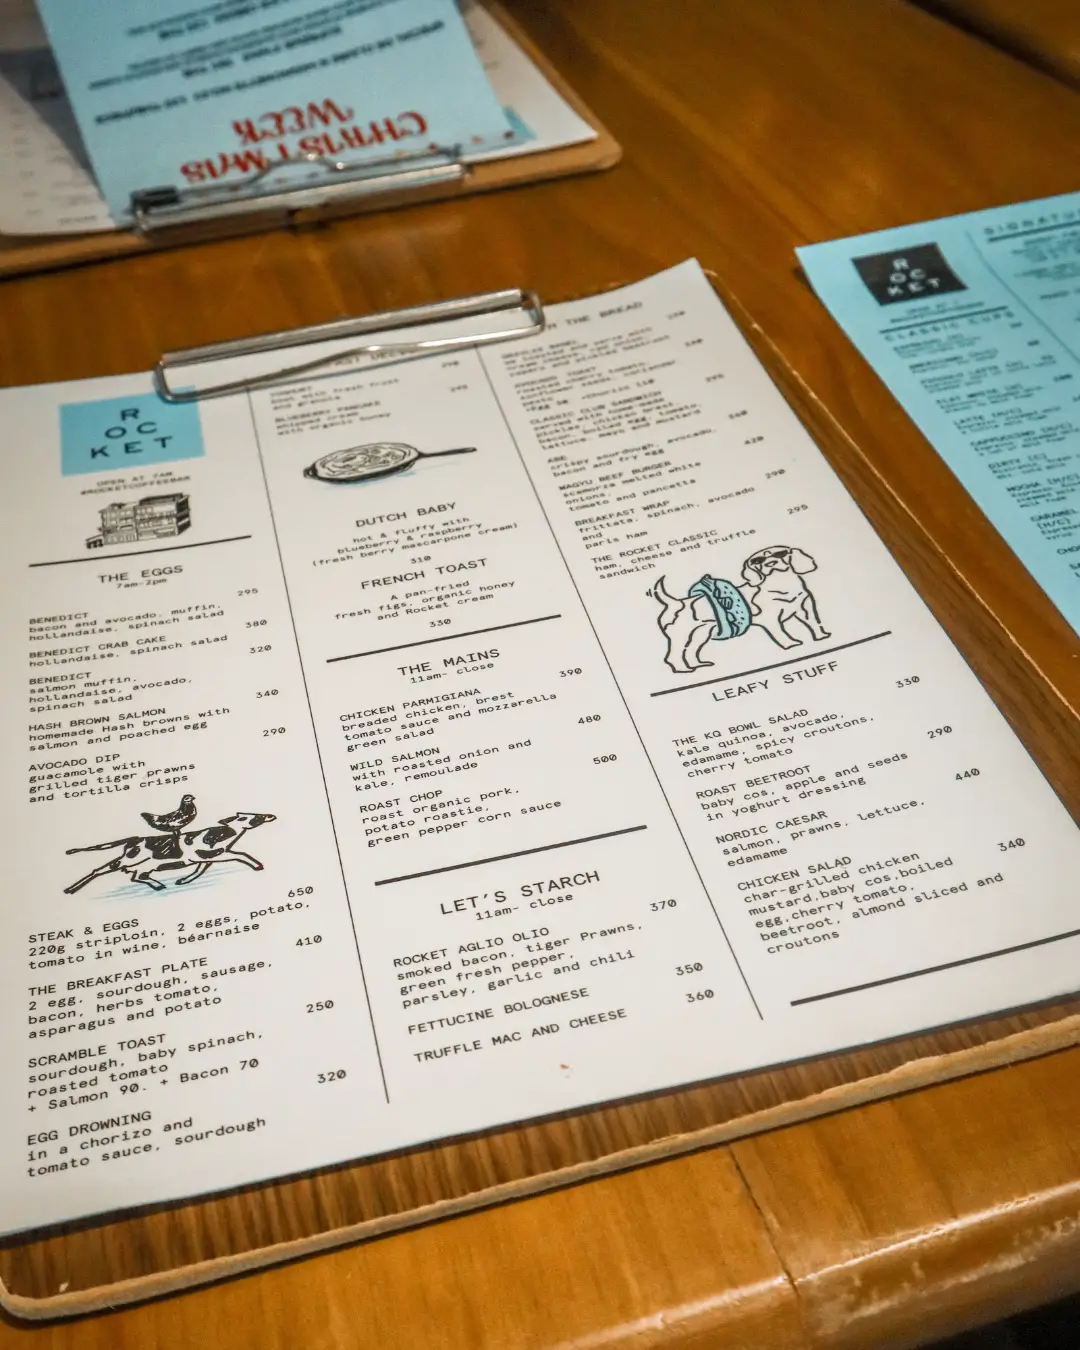 CHRISTMAS
WEEK
R
OC
KET
OPEN AT 7AM
#ROCKETCOFFEEBAR
THE EGGS
7am-2pm
295
BENEDICT
bacon and avocado, muffin,
hollandaise, spinach salad
380
BENEDICT CRAB CAKE
hollandaise, spinach salad
320
BENEDICT
salmon muffin,
hollandaise, avocado,
spinach salad
340
HASH BROWN SALMON
homemade Hash browns with
salmon and poached egg
290
AVOCADO DIP
guacamole with
grilled tiger prawns
and tortilla crisps
650
STEAK & EGGS
220g striploin, 2 eggs, potato,
tomato in wine, béarnaise
410
THE BREAKFAST PLATE
2 egg, sourdough, sausage,
bacon, herbs tomato,
asparagus and potato
250
SCRAMBLE TOAST
sourdough, baby spinach,
roasted tomato
+ Salmon 90. + Bacon 70
320
EGG DROWNING
in a chorizo and
tomato sauce, sourdough
290
bowl with fresh fruit
and granola
BLUEBERRY PANCAKE
whipped cream
with organic honey
DUTCH BABY
hot & fluffy with
blueberry & raspberry
(fresh berry mascarpone cream)
310
FRENCH TOAST
A pan-fried
fresh figs, organic honey
and Rocket cream
330
THE MAINS
11am- close
390
CHICKEN PARMIGIANA
breaded chicken, brest
tomato sauce and mozzarella
green salad
480
WILD SALMON
with roasted onion and
kale, remoulade
500
ROAST CHOP
roast organic pork,
potato roastie,
green pepper corn sauce
LET'S STARCH
11am- close
370
ROCKET AGLIO OLIO
smoked bacon, tiger Prawns,
green fresh pepper,
parsley, garlic and chili
350
FETTUCINE BOLOGNESE
360
TRUFFLE MAC AND CHEESE
THE BREAD
AVOCADO TOAST
roasted cherry tomato,
sunflower seeds, coriander
pesto
+Egg 30 +Chorizo 110
295
CLASSIC CLUB SANDWICH
served with home made
pickles, chicken brest,
bacon, boiled egg, tomato,
lettuce, mayo and mustard
360
ABE
crispy sourdough, avocado,
bacon and fry egg
420
WAGYU BEEF BURGER
scamorza melted white
onions,
tomato and pancetta
290
BREAKFAST WRAP
frittata, spinach, avocado
and
paris ham
295
THE ROCKET CLASSIC
ham, cheese and truffle
sandwich
LEAFY STUFF
330
THE KQ BOWL SALAD
kale quinoa, avocado,
edamame, spicy croutons,
cherry tomato
290
ROAST BEETROOT
baby cos, apple and seeds
in yoghurt dressing
440
NORDIC CAESAR
salmon, prawns, lettuce,
edamame
340
CHICKEN SALAD
char-grilled chicken
mustard,baby cos,boiled
egg,cherry tomato,
beetroot, almond sliced and
croutons
R
OC
KET
CLASSIC CUPS
FLAT WHITE
LATTE (H/C)
CAPPUCCINO (H/C)
DIRTY (C)
MOCHA (H/C)
CARAMEL
(H/C)